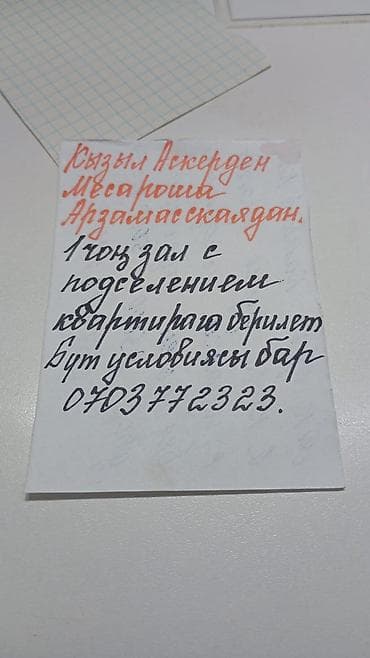 Кызыл Аскерден
Месароша
Арзамасскаядан.
1 чоң зал с
подселением
квартирага берилет
Бүт условиясы бар
0703772323.